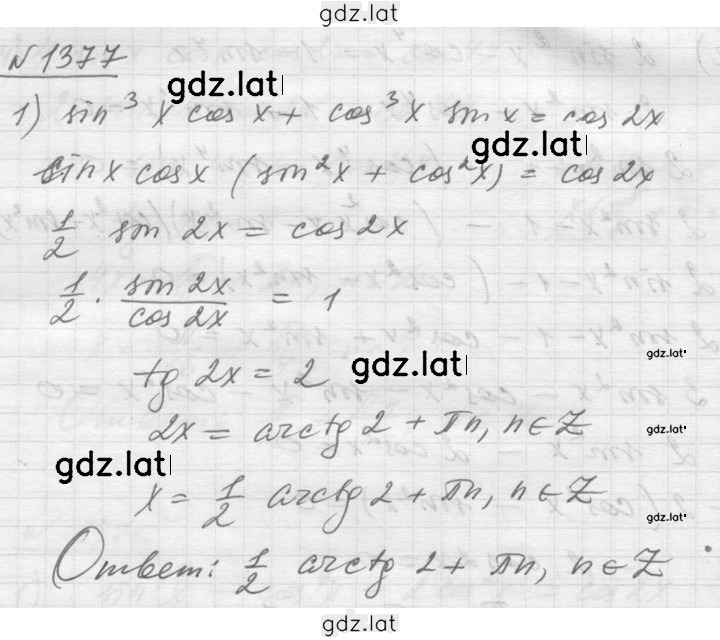 gdz.lat
№ 1377
gdz.lat
1) sin³ x cos x + cos³ x sin x = cos 2x
gdz.lat
sin x cos x (sin² x + cos² x) = cos 2x
1/2 sin 2x = cos 2x
1/2 · sin 2x / cos 2x = 1
gdz.lat
tg 2x = 2
gdz.lat
2x = arctg 2 + πn, n ∈ Z
gdz.lat
gdz.lat
x = 1/2 arctg 2 + πn, n ∈ Z
gdz.lat
Ответ: 1/2 arctg 2 + πn, n ∈ Z
gdz.lat